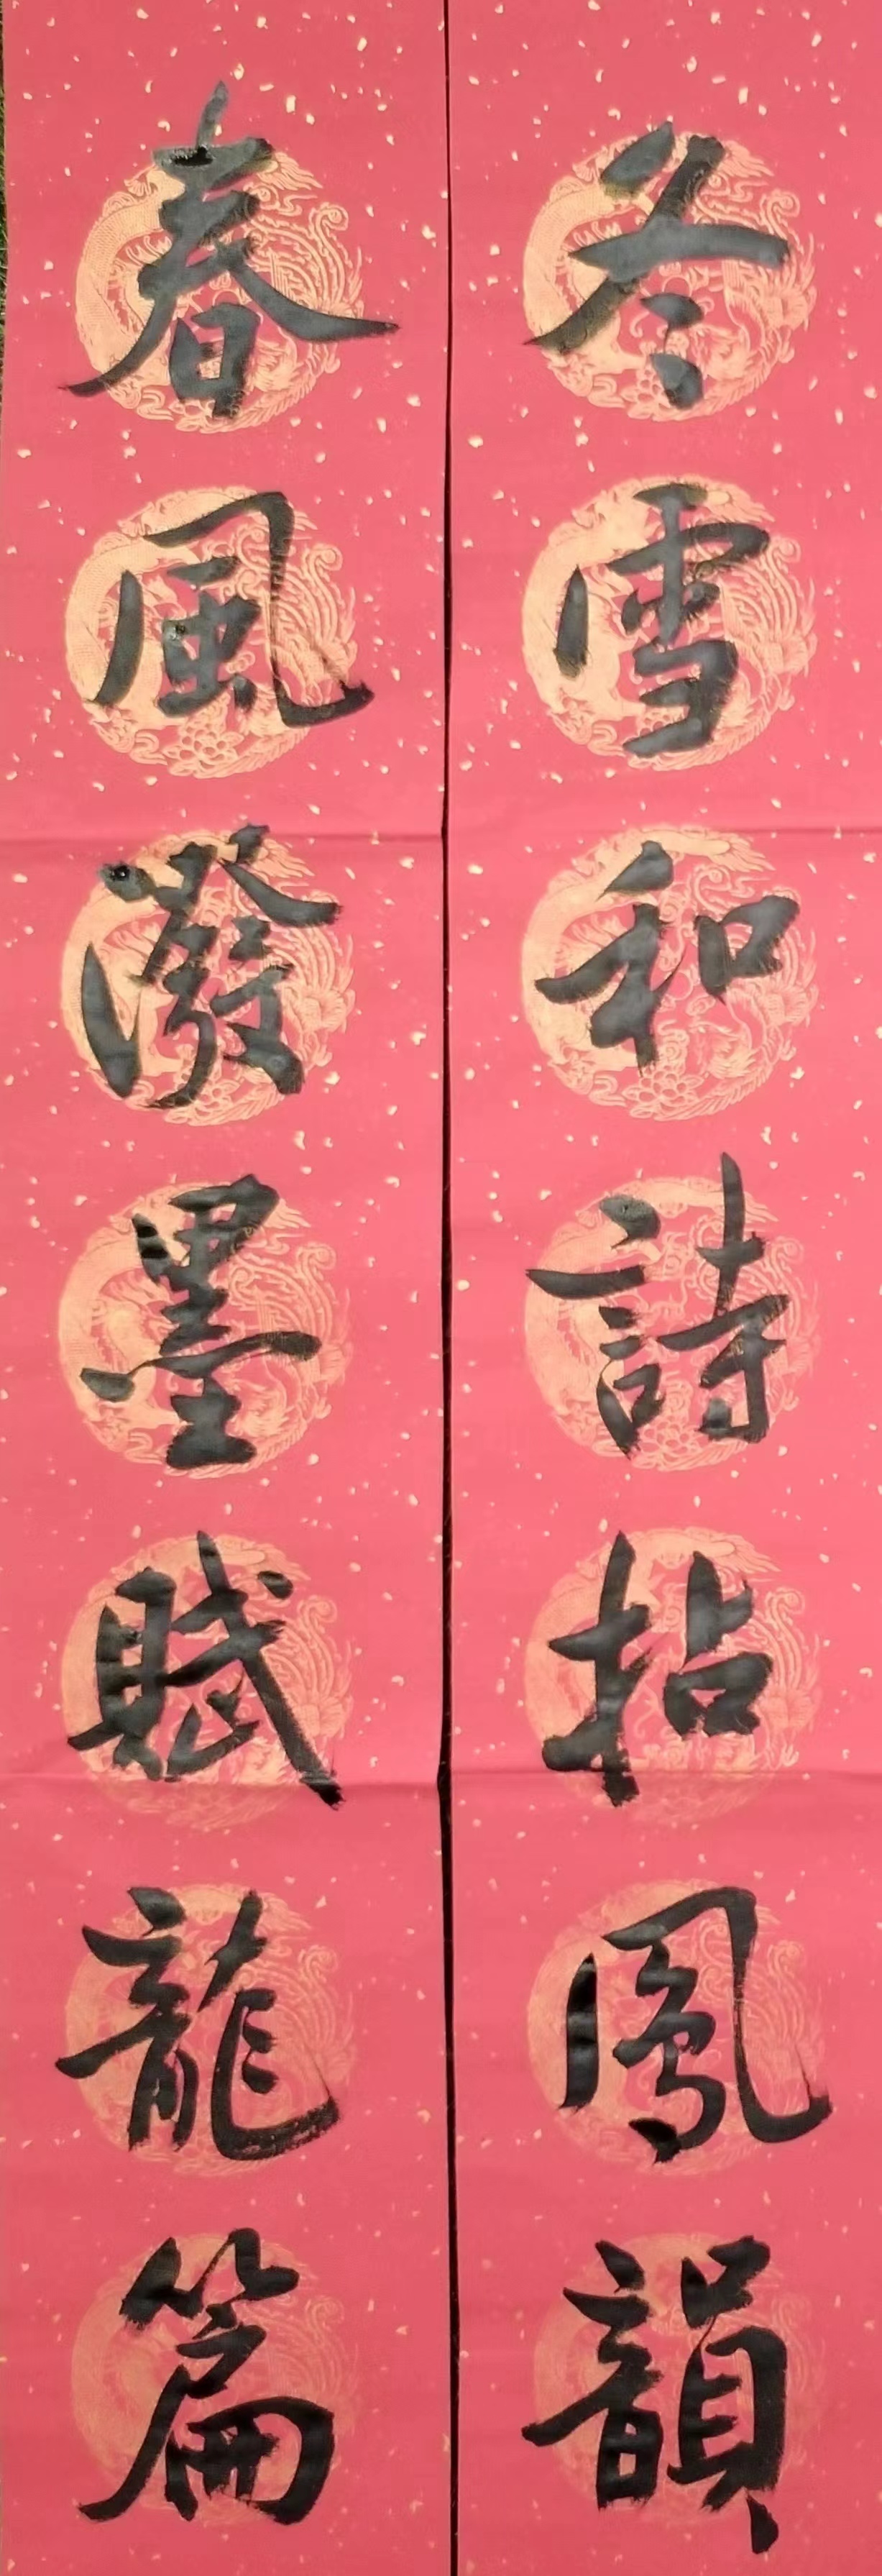 冬雪和詩拈鳳韻
春風潑墨賦龍篇